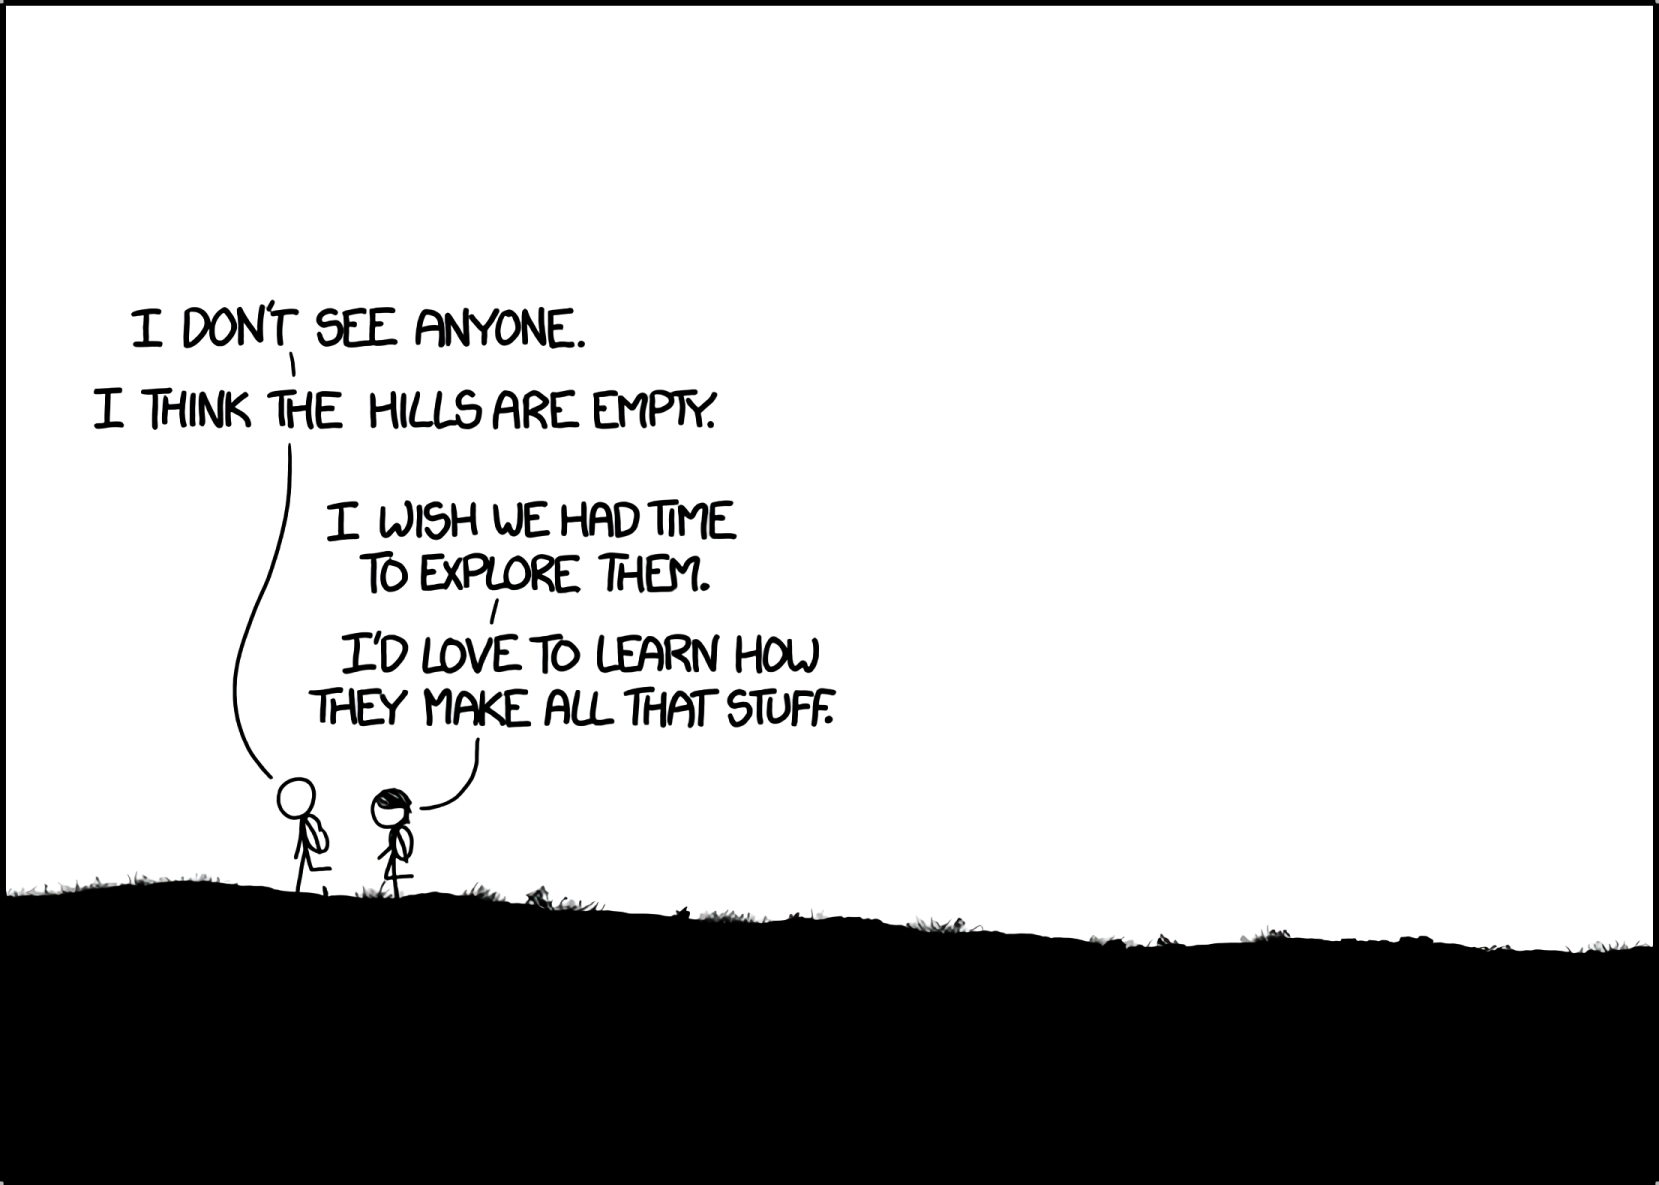 I DON'T SEE ANYONE.
I THINK THE HILLS ARE EMPTY.
I WISH WE HAD TIME
TO EXPLORE THEM.
I'D LOVE TO LEARN HOW
THEY MAKE ALL THAT STUFF.